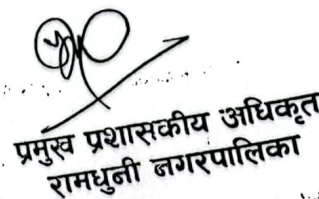 प्रमुख प्रशासकीय अधिकृत
रामधुनी नगरपालिका